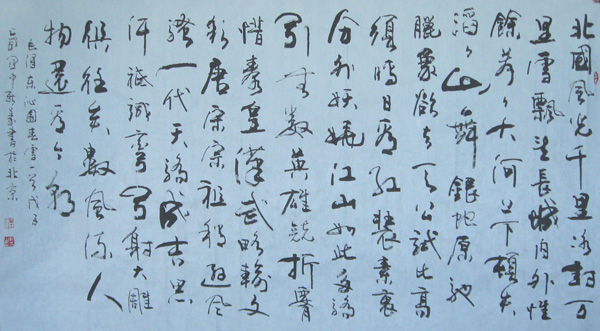 北國風光千里冰封万
里雪飄望長城内外惟
餘莽々大河上下頓失
滔々山舞銀蛇原馳
臘象欲与天公試比高
須晴日看紅裝素裹
分外妖嬈江山如此多嬌
引無數英雄競折腰
惜秦皇漢武略輸文
彩唐宗宋祖稍遜風
騷一代天驕成吉思
汗祗識彎弓射大雕
俱往矣數風流人
物還看今朝
毛澤東沁園春雪一首戊子
書於北京